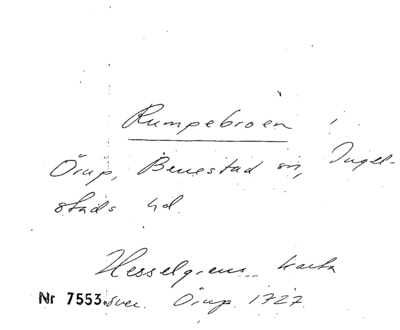 Rumpebroen i
Örup, Benestad sn, Ingel-
stads hd.
Hesselgrens karta
Nr 7553 över Örup 1727.